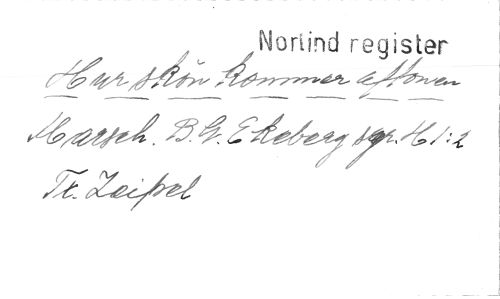 Norlind register
Hur skön kommer aftonen
Marsch. B.G. Ekeberg sgr. H 1:2
Tr. Zeipel